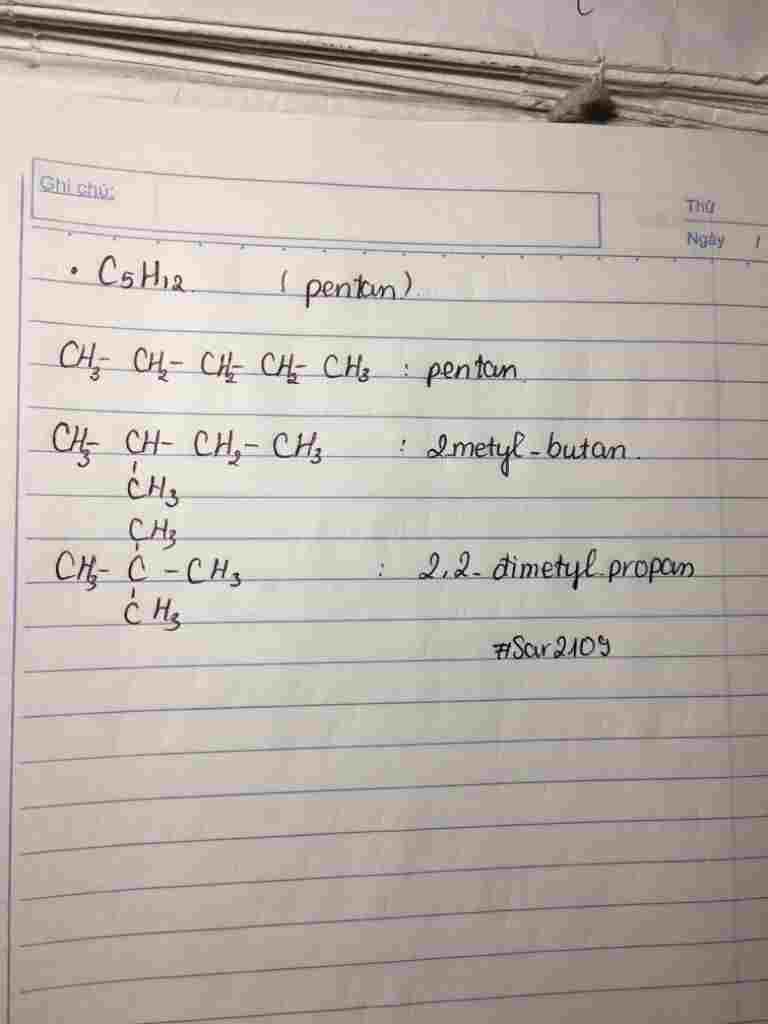 Ghi chú:
Thứ
Ngày /
• C₅H₁₂ (pentan).
CH₃- CH₂- CH₂- CH₂- CH₃ : pentan.
CH₃- CH- CH₂- CH₃ : 2metyl-butan.
CH₃
CH₃
CH₃- C -CH₃ : 2,2-dimetyl propan
CH₃
#Sar2109